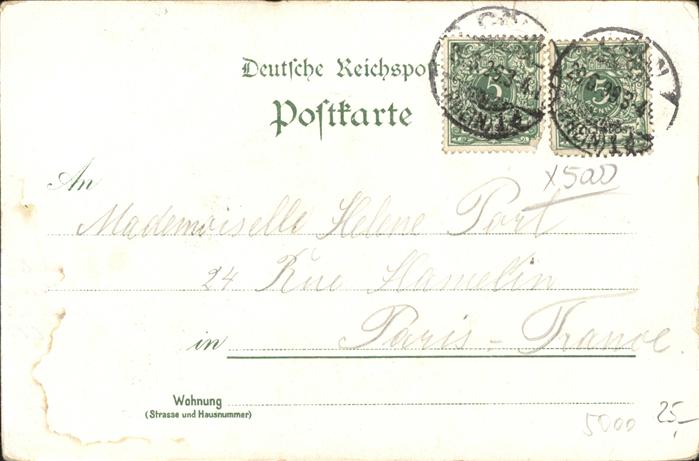 Deutsche Reichspo
Postkarte
5
5
x5000
An
Mademoiselle Helene Port
24 Rue Hamelin
in Paris - France.
Wohnung
(Strasse und Hausnummer)
5000
25,-